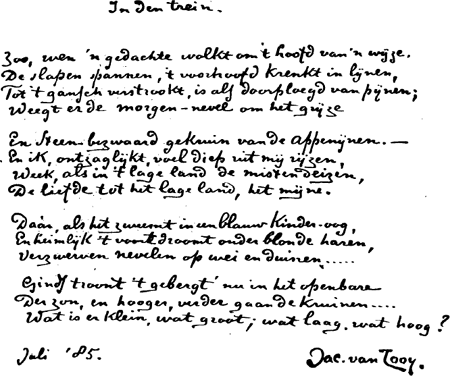 In den trein.
Zoo, wen 'n gedachte wolkt om 't hoofd van 'n wijze.
De slapen spannen, 't voorhoofd krenkt in lijnen,
Tot 't gansch verstrookt, is als doorploegd van pijnen;
Weegt er de morgen-nevel om het grijze
En Steen-bezwaard gekruin van de Appenijnen. —
En ik, ontzaglijkt, voel diep uit mij rijzen,
Week, als in 't lage land de misten deizen,
De liefde tot het lage land, het mijne.
Dáár, als het zwemt in een blauw Kinder-oog,
En heimlijk 't voort droomt onder blonde haren,
Verzwerven nevelen op wei en duinen.....
Ginds troont 't gebergt' nu in het openbare
Der zon, en hooger, verder gaan de Kruinen....
Wat is er klein, wat groot; wat laag, wat hoog?
Juli '85.
Jac. van Looy.